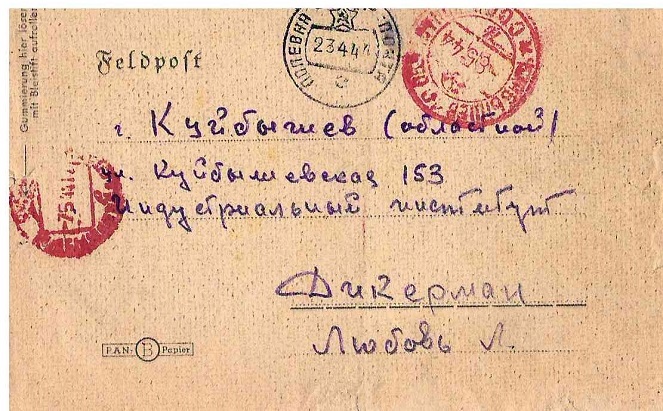 Gummierung hier lösen
mit Bleistift aufrollen
Feldpost
23.4.44
г. Куйбышев (областной)
ул. Куйбышевская 153
Индустриальный институт
Дикерман
Любовь Л.
PAN: B Papier